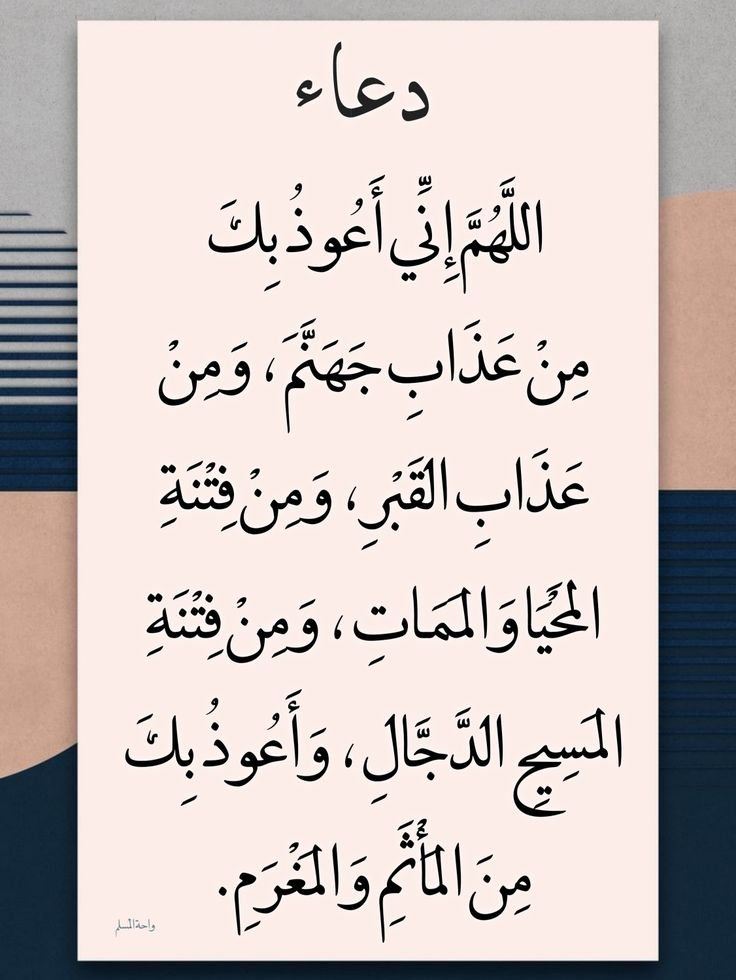 دعاء
اللَّهُمَّ إِنِّي أَعُوذُ بِكَ
مِنْ عَذَابِ جَهَنَّمَ، وَمِنْ
عَذَابِ القَبْرِ، وَمِنْ فِتْنَةِ
المَحْيَا وَالمَمَاتِ، وَمِنْ فِتْنَةِ
المَسِيحِ الدَّجَّالِ، وَأَعُوذُ بِكَ
مِنَ المَأْثَمِ وَالمَغْرَمِ.
واحة المسلم